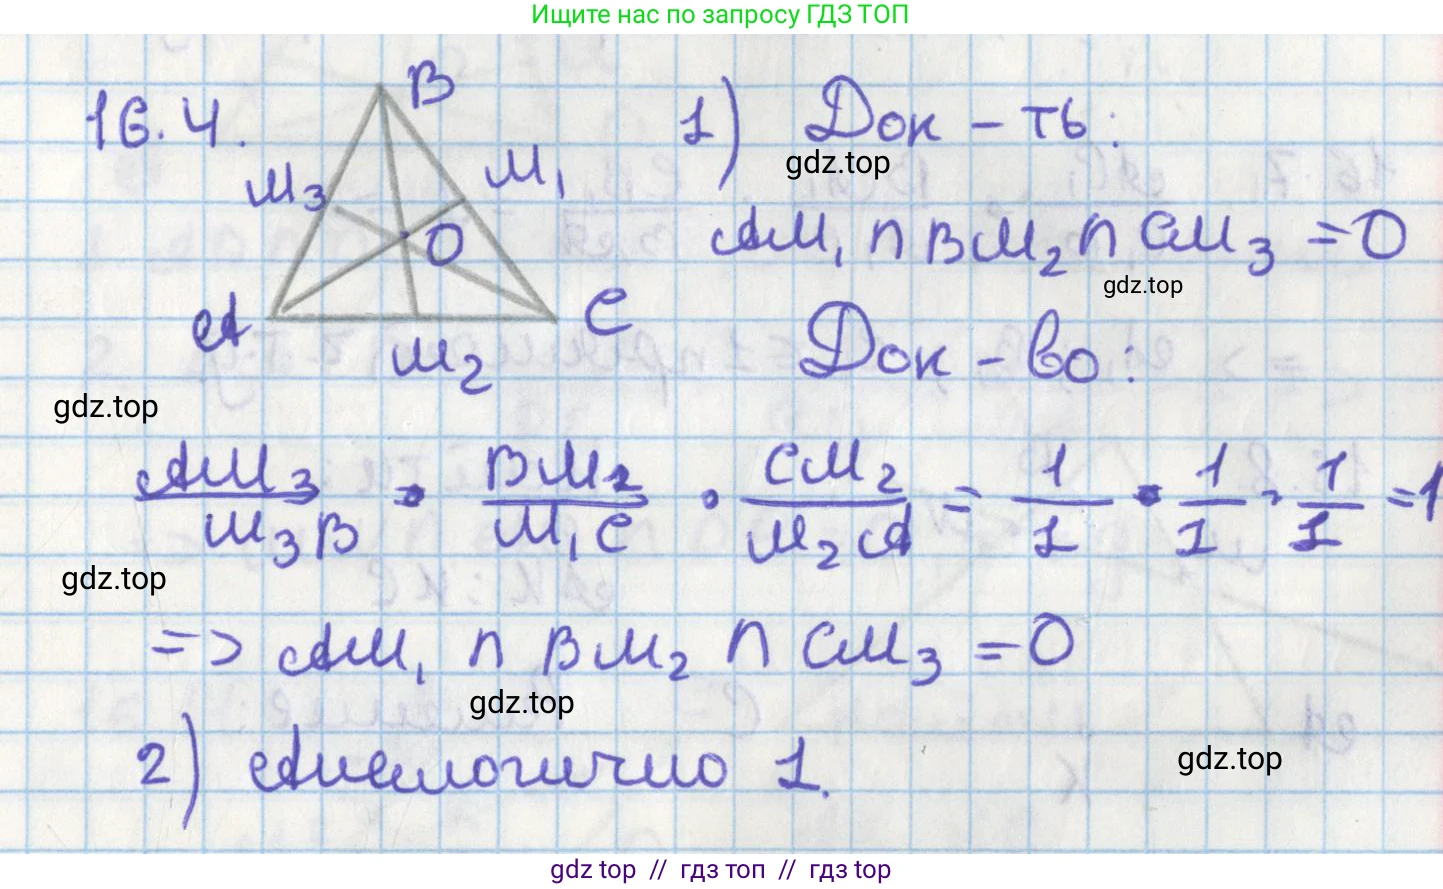 Ищите нас по запросу ГДЗ ТОП
16.4.
B
M₃
M₁
O
A
C
M₂
1) Док-ть:
gdz.top
AM₁ ∩ BM₂ ∩ CM₃ = O
gdz.top
Док-во:
gdz.top
AM₃/M₃B · BM₂/M₁C · CM₂/M₂A = 1/1 · 1/1 · 1/1 = 1
gdz.top
=> AM₁ ∩ BM₂ ∩ CM₃ = O
gdz.top
2) Аналогично 1.
gdz.top
gdz top // гдз топ // гдз top